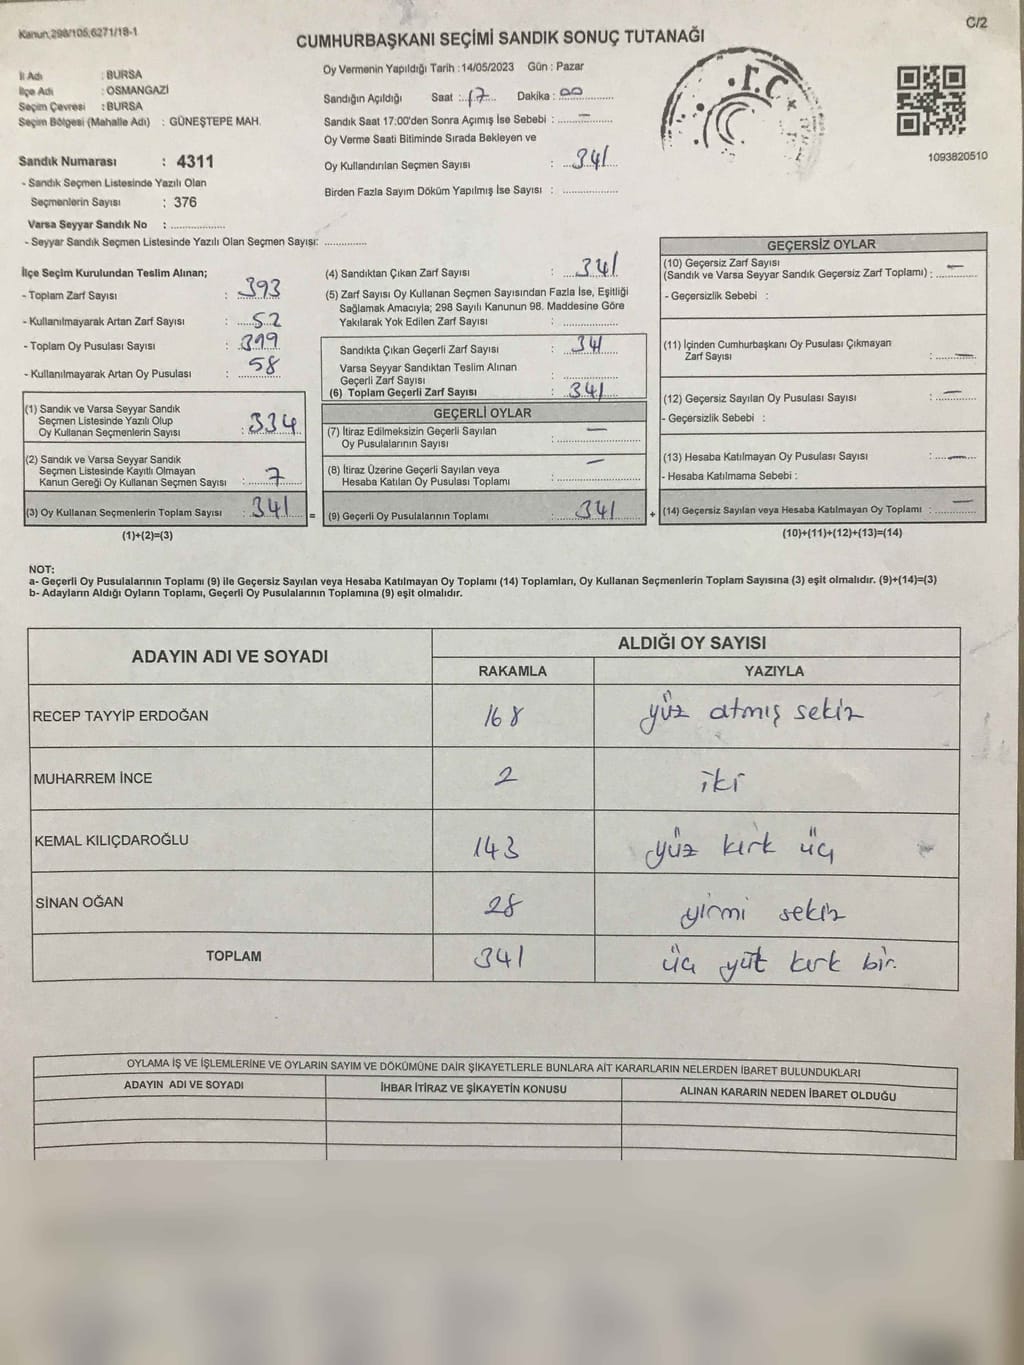 Kanun,298/105,6271/18-1
C/2
CUMHURBAŞKANI SEÇİMİ SANDIK SONUÇ TUTANAĞI
İl Adı : BURSA
İlçe Adı : OSMANGAZİ
Seçim Çevresi : BURSA
Seçim Bölgesi (Mahalle Adı) : GÜNEŞTEPE MAH.
Sandık Numarası : 4311
- Sandık Seçmen Listesinde Yazılı Olan
Seçmenlerin Sayısı : 376
Varsa Seyyar Sandık No : ....................
- Seyyar Sandık Seçmen Listesinde Yazılı Olan Seçmen Sayısı: ..............
Oy Vermenin Yapıldığı Tarih : 14/05/2023 Gün : Pazar
Sandığın Açıldığı Saat : 17 Dakika : 00
Sandık Saat 17:00'den Sonra Açımış İse Sebebi : —
Oy Verme Saati Bitiminde Sırada Bekleyen ve
Oy Kullandırılan Seçmen Sayısı : 341
Birden Fazla Sayım Döküm Yapılmış İse Sayısı : ....................
T.C.
1093820510
İlçe Seçim Kurulundan Teslim Alınan;
- Toplam Zarf Sayısı : 393
- Kullanılmayarak Artan Zarf Sayısı : 52
- Toplam Oy Pusulası Sayısı : 399
- Kullanılmayarak Artan Oy Pusulası : 58
(1) Sandık ve Varsa Seyyar Sandık
Seçmen Listesinde Yazılı Olup
Oy Kullanan Seçmenlerin Sayısı : 334
(2) Sandık ve Varsa Seyyar Sandık
Seçmen Listesinde Kayıtlı Olmayan
Kanun Gereği Oy Kullanan Seçmen Sayısı : 7
(3) Oy Kullanan Seçmenlerin Toplam Sayısı : 341 =
(1)+(2)=(3)
(4) Sandıktan Çıkan Zarf Sayısı : 341
(5) Zarf Sayısı Oy Kullanan Seçmen Sayısından Fazla İse, Eşitliği
Sağlamak Amacıyla; 298 Sayılı Kanunun 98. Maddesine Göre
Yakılarak Yok Edilen Zarf Sayısı : ....................
Sandıkta Çıkan Geçerli Zarf Sayısı : 341
Varsa Seyyar Sandıktan Teslim Alınan
Geçerli Zarf Sayısı : ....................
(6) Toplam Geçerli Zarf Sayısı : 341
GEÇERLİ OYLAR
(7) İtiraz Edilmeksizin Geçerli Sayılan
Oy Pusulalarının Sayısı : —
(8) İtiraz Üzerine Geçerli Sayılan veya
Hesaba Katılan Oy Pusulası Toplamı : —
(9) Geçerli Oy Pusulalarının Toplamı : 341 +
GEÇERSİZ OYLAR
(10) Geçersiz Zarf Sayısı
(Sandık ve Varsa Seyyar Sandık Geçersiz Zarf Toplamı) : —
- Geçersizlik Sebebi :
(11) İçinden Cumhurbaşkanı Oy Pusulası Çıkmayan
Zarf Sayısı : —
(12) Geçersiz Sayılan Oy Pusulası Sayısı : —
- Geçersizlik Sebebi :
(13) Hesaba Katılmayan Oy Pusulası Sayısı : —
- Hesaba Katılmama Sebebi :
(14) Geçersiz Sayılan veya Hesaba Katılmayan Oy Toplamı : —
(10)+(11)+(12)+(13)=(14)
NOT:
a- Geçerli Oy Pusulalarının Toplamı (9) ile Geçersiz Sayılan veya Hesaba Katılmayan Oy Toplamı (14) Toplamları, Oy Kullanan Seçmenlerin Toplam Sayısına (3) eşit olmalıdır. (9)+(14)=(3)
b- Adayların Aldığı Oyların Toplamı, Geçerli Oy Pusulalarının Toplamına (9) eşit olmalıdır.
ADAYIN ADI VE SOYADI ALDIĞI OY SAYISI
RAKAMLA YAZIYLA
RECEP TAYYİP ERDOĞAN 168 yüz atmış sekiz
MUHARREM İNCE 2 iki
KEMAL KILIÇDAROĞLU 143 yüz kırk üç
SİNAN OĞAN 28 yirmi sekiz
TOPLAM 341 üç yüz kırk bir.
OYLAMA İŞ VE İŞLEMLERİNE VE OYLARIN SAYIM VE DÖKÜMÜNE DAİR ŞİKAYETLERLE BUNLARA AİT KARARLARIN NELERDEN İBARET BULUNDUKLARI
ADAYIN ADI VE SOYADI İHBAR İTİRAZ VE ŞİKAYETİN KONUSU ALINAN KARARIN NEDEN İBARET OLDUĞU